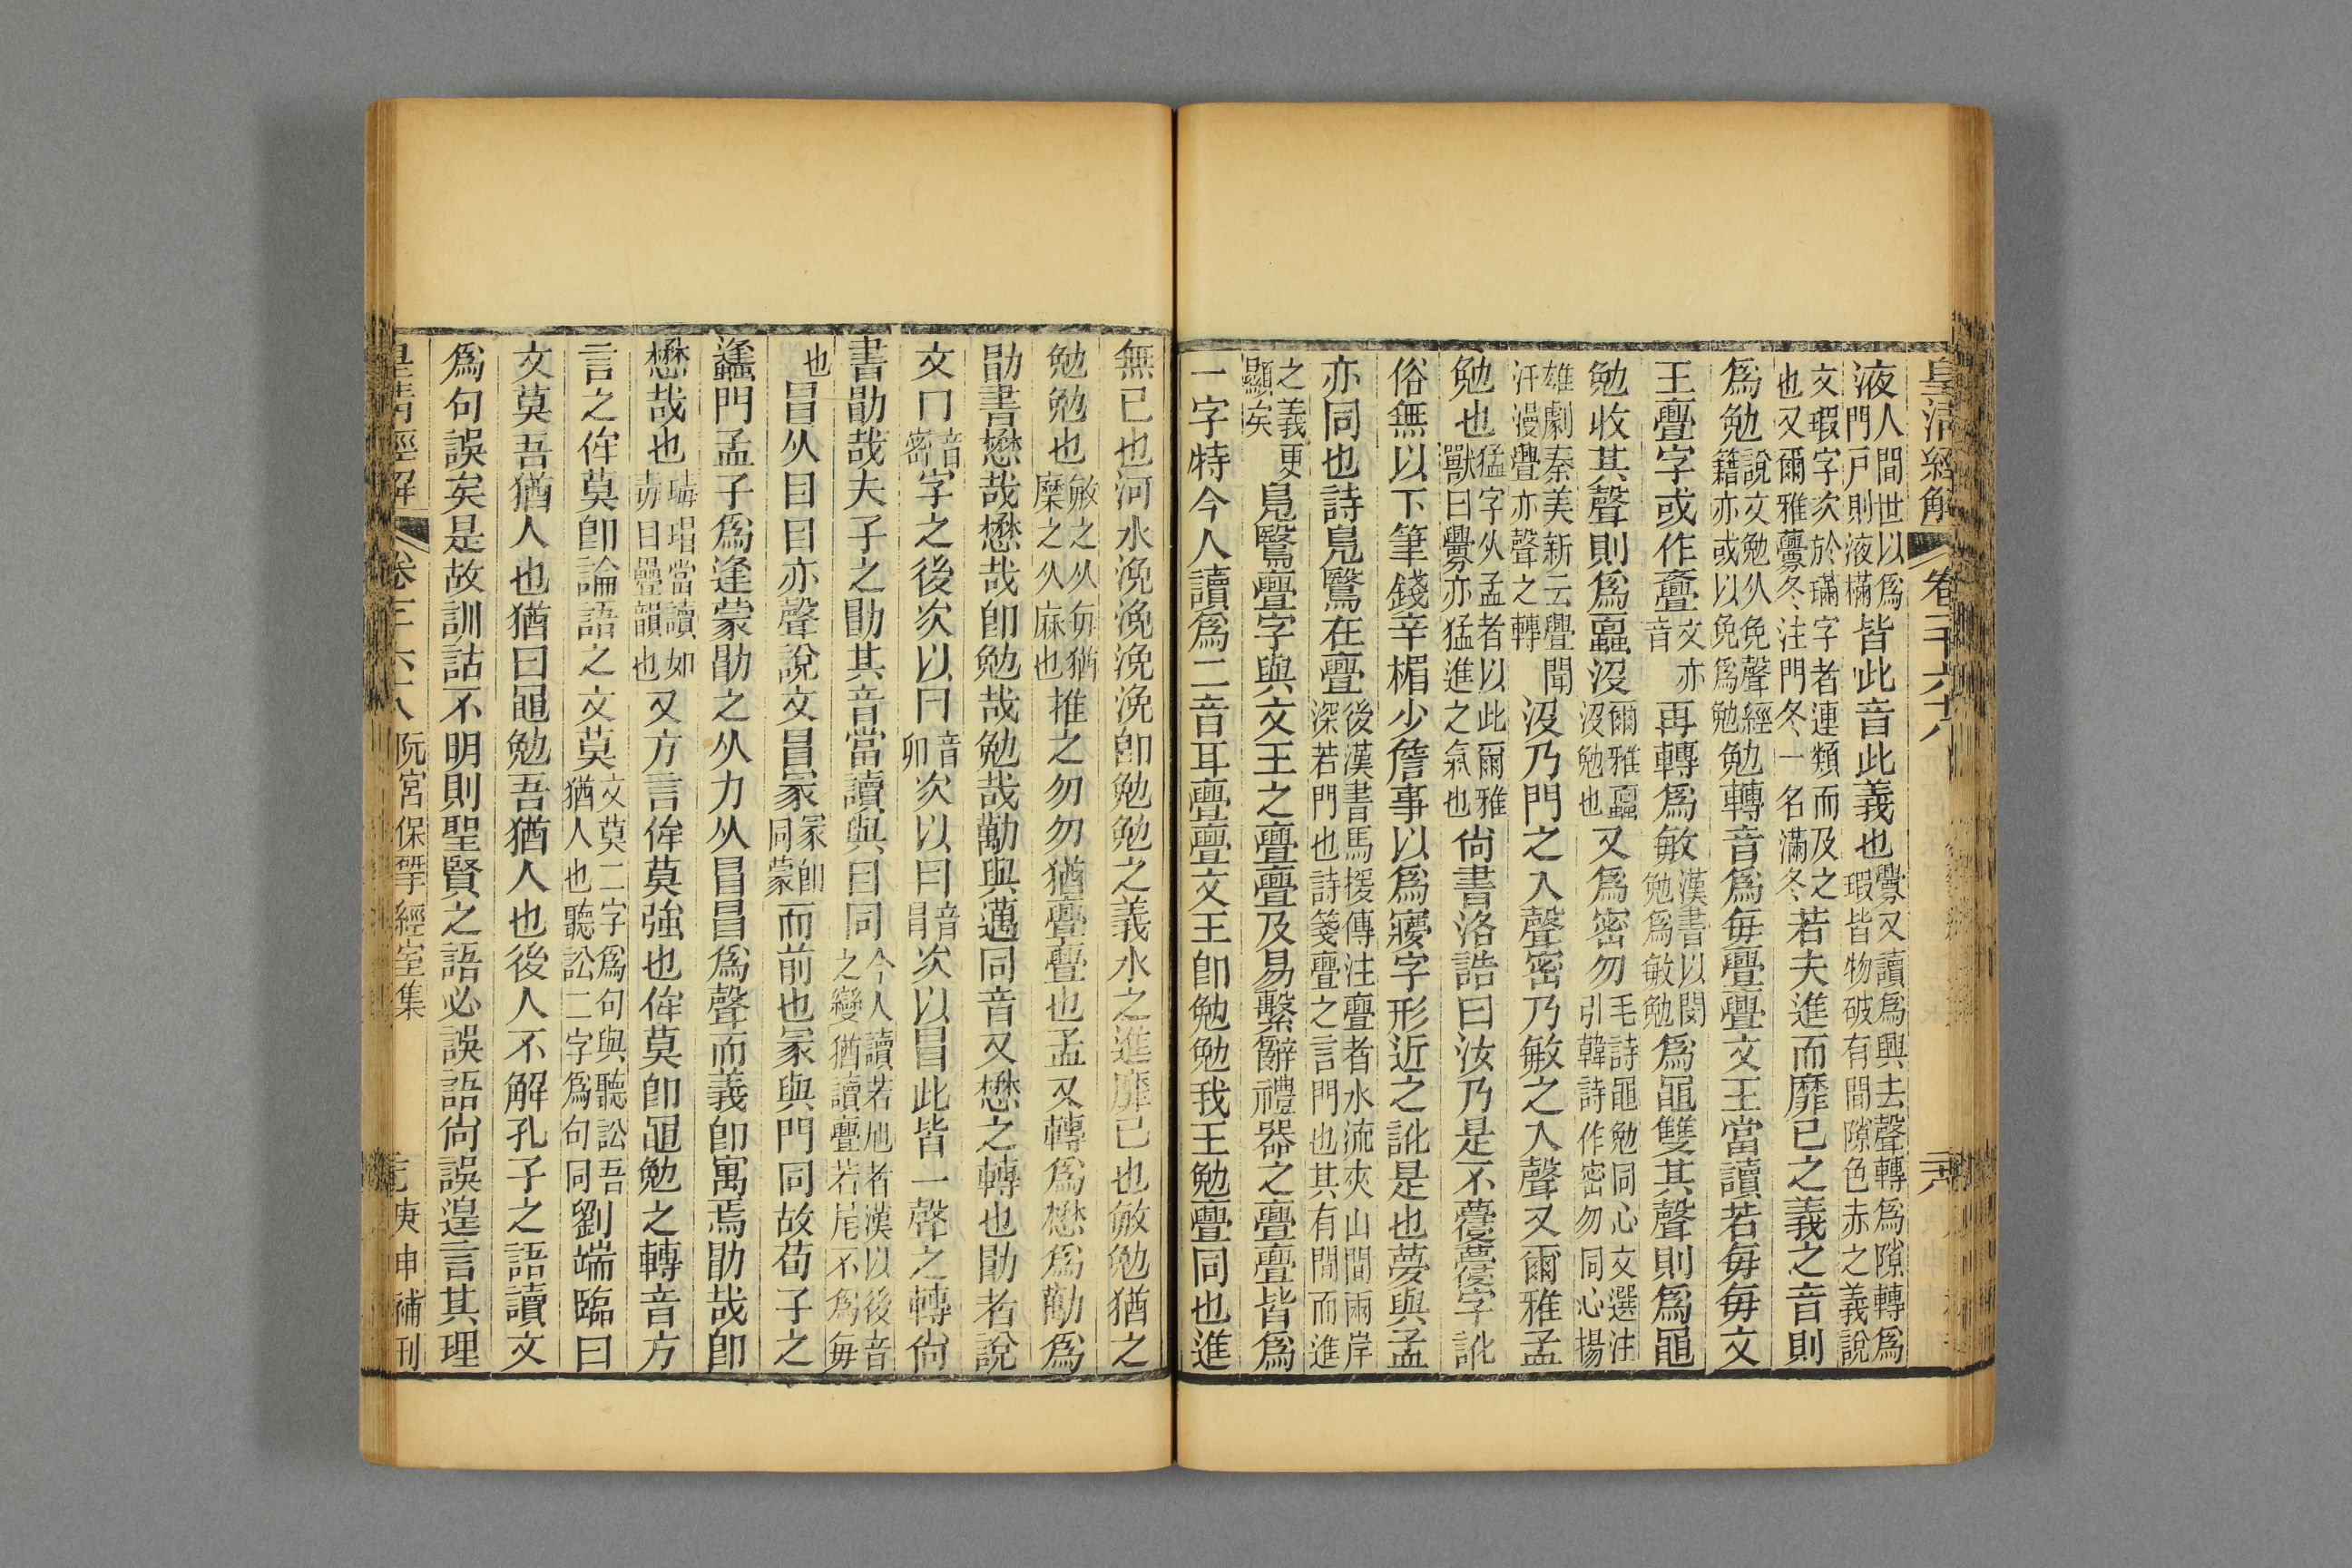 皇清經解 卷一千六十八
液人間世以爲門戸則液樠皆此音此義也釁又讀爲興去聲轉爲隙轉爲瑕皆物破有間隙色赤之義說
文瑕字次於璊字者連類而及之也又爾雅虋冬注門冬一名滿冬若夫進而靡已之義之音則
爲勉說文勉从免聲經籍亦或以免爲勉勉轉音爲每亹亹文王當讀若每每文
王亹字或作斖文亦音再轉爲敏漢書以閔勉爲敏勉爲黽雙其聲則爲黽
勉收其聲則爲蠠沒爾雅蠠沒勉也又爲密勿毛詩黽勉同心文選注引韓詩作密勿同心揚
雄劇秦美新云亹聞汗漫亹亦聲之轉沒乃門之入聲密乃敏之入聲又爾雅孟
勉也猛字从孟者以此爾雅獸曰釁亦猛進之氣也尙書洛誥曰汝乃是不蘉蘉字訛
俗無以下筆錢辛楣少詹事以爲寢字形近之訛是也夢與孟
亦同也詩鳧鷖在亹後漢書馬援傳注亹者水流夾山間兩岸深若門也詩箋亹之言門也其有間而進
之義更顯矣鳧鷖亹字與文王之亹亹及易繫辭禮器之亹亹皆爲
一字特今人讀爲二音耳亹亹文王卽勉勉我王勉亹同也進
無已也河水浼浼浼浼卽勉勉之義水之進靡已也敏勉猶之
勉勉也敏之从每猶穈之从麻也推之勿勿猶亹亹也孟又轉爲懋爲勱爲
勖書懋哉懋哉卽勉哉勉哉勱與邁同音又懋之轉也勖者說
文冂音密字之後次以冃音卯次以曰音冒次以冒此皆一聲之轉尙
書勖哉夫子之勖其音當讀與目同今人讀若旭者漢以後音之變猶讀亹若尾不爲每
也冒从目目亦聲說文冒冡冡卽同蒙而前也冡與門同故荀子之
蠭門孟子爲逢蒙勖之从力从冒冒爲聲而義卽寓焉勖哉卽
懋哉也瑇瑁當讀如毒目疊韻也又方言侔莫強也侔莫卽黽勉之轉音方
言之侔莫卽論語之文莫文莫二字爲句與聽訟吾猶人也聽訟二字爲句同劉端臨曰
文莫吾猶人也猶曰黽勉吾猶人也後人不解孔子之語讀文
爲句誤矣是故訓詁不明則聖賢之語必誤語尙誤遑言其理
皇清經解 卷一千六十八 阮宮保揅經室集 庚申補刊